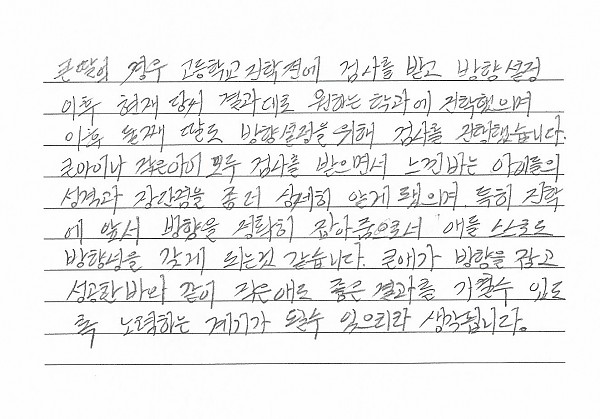 큰딸의 경우 고등학교 진학전에 검사를 받고 방향설정
이후 현재 당시 결과대로 원하는 학과에 진학했으며
이후 둘째 딸도 방향설정을 위해 검사를 진행했습니다.
큰아이나 작은아이 모두 검사를 받으면서 느낀바는 아이들의
성격과 장단점을 좀더 상세히 알게 됐으며, 특히 진학
에 앞서 방향을 정확히 잡아줌으로서 애들 스스로도
방향성을 갖게 되는것 같습니다. 큰애가 방향을 잡고
성공한바와 같이 작은애도 좋은 결과를 가질수 있도
록 노력하는 계기가 될수 있으리라 생각됩니다.